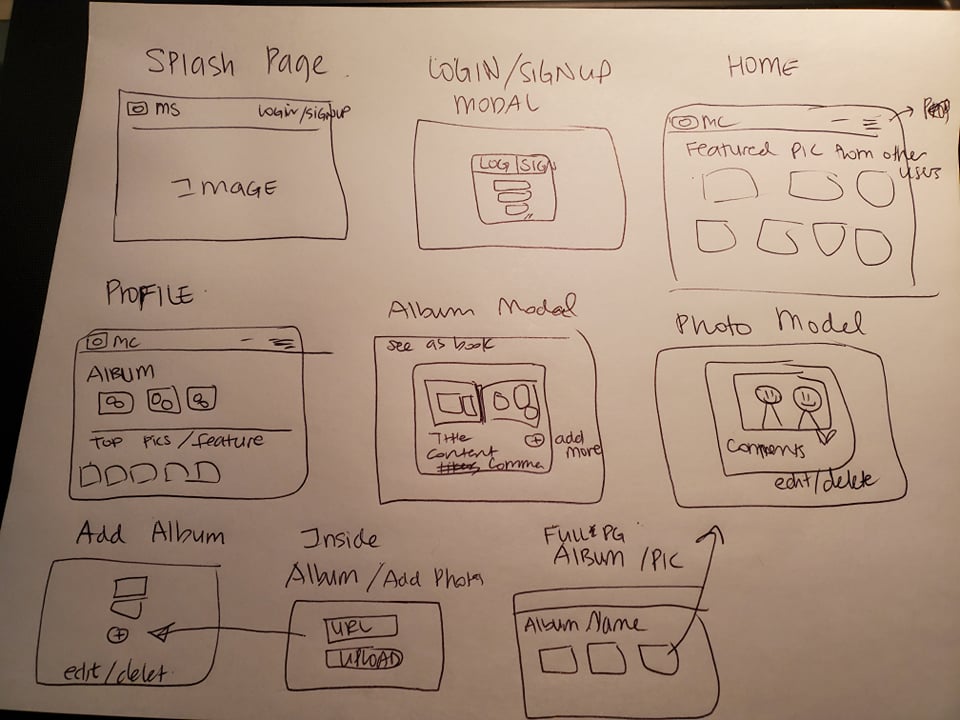 Splash Page
MS
LOGIN/SIGNUP
IMAGE
LOGIN/SIGNUP
MODAL
LOG SIGN
HOME
MC
Featured Pic from other
users
PROFILE
MC
ALBUM
Top Pics/feature
Album Modal
see as book
Title
content
Comme
add
more
Photo Model
Comments
edit/delete
Add Album
edit/delet.
Inside
Album/Add Photo
URL
UPLOAD
Full PG
Album /PIC
Album Name